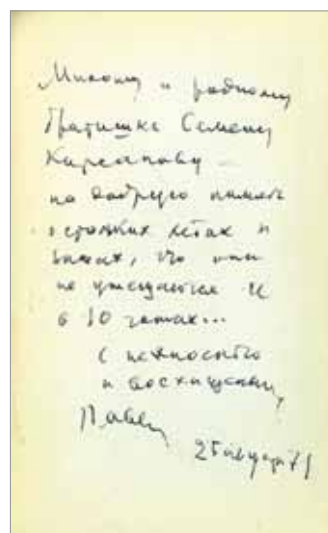 Милому и родному
братишке Семену
Кирсанову –
на добрую память
о стольких летах и
зимах, что они
не умещаются и
в
С нежностью
и восхищением,
Павел
25 71